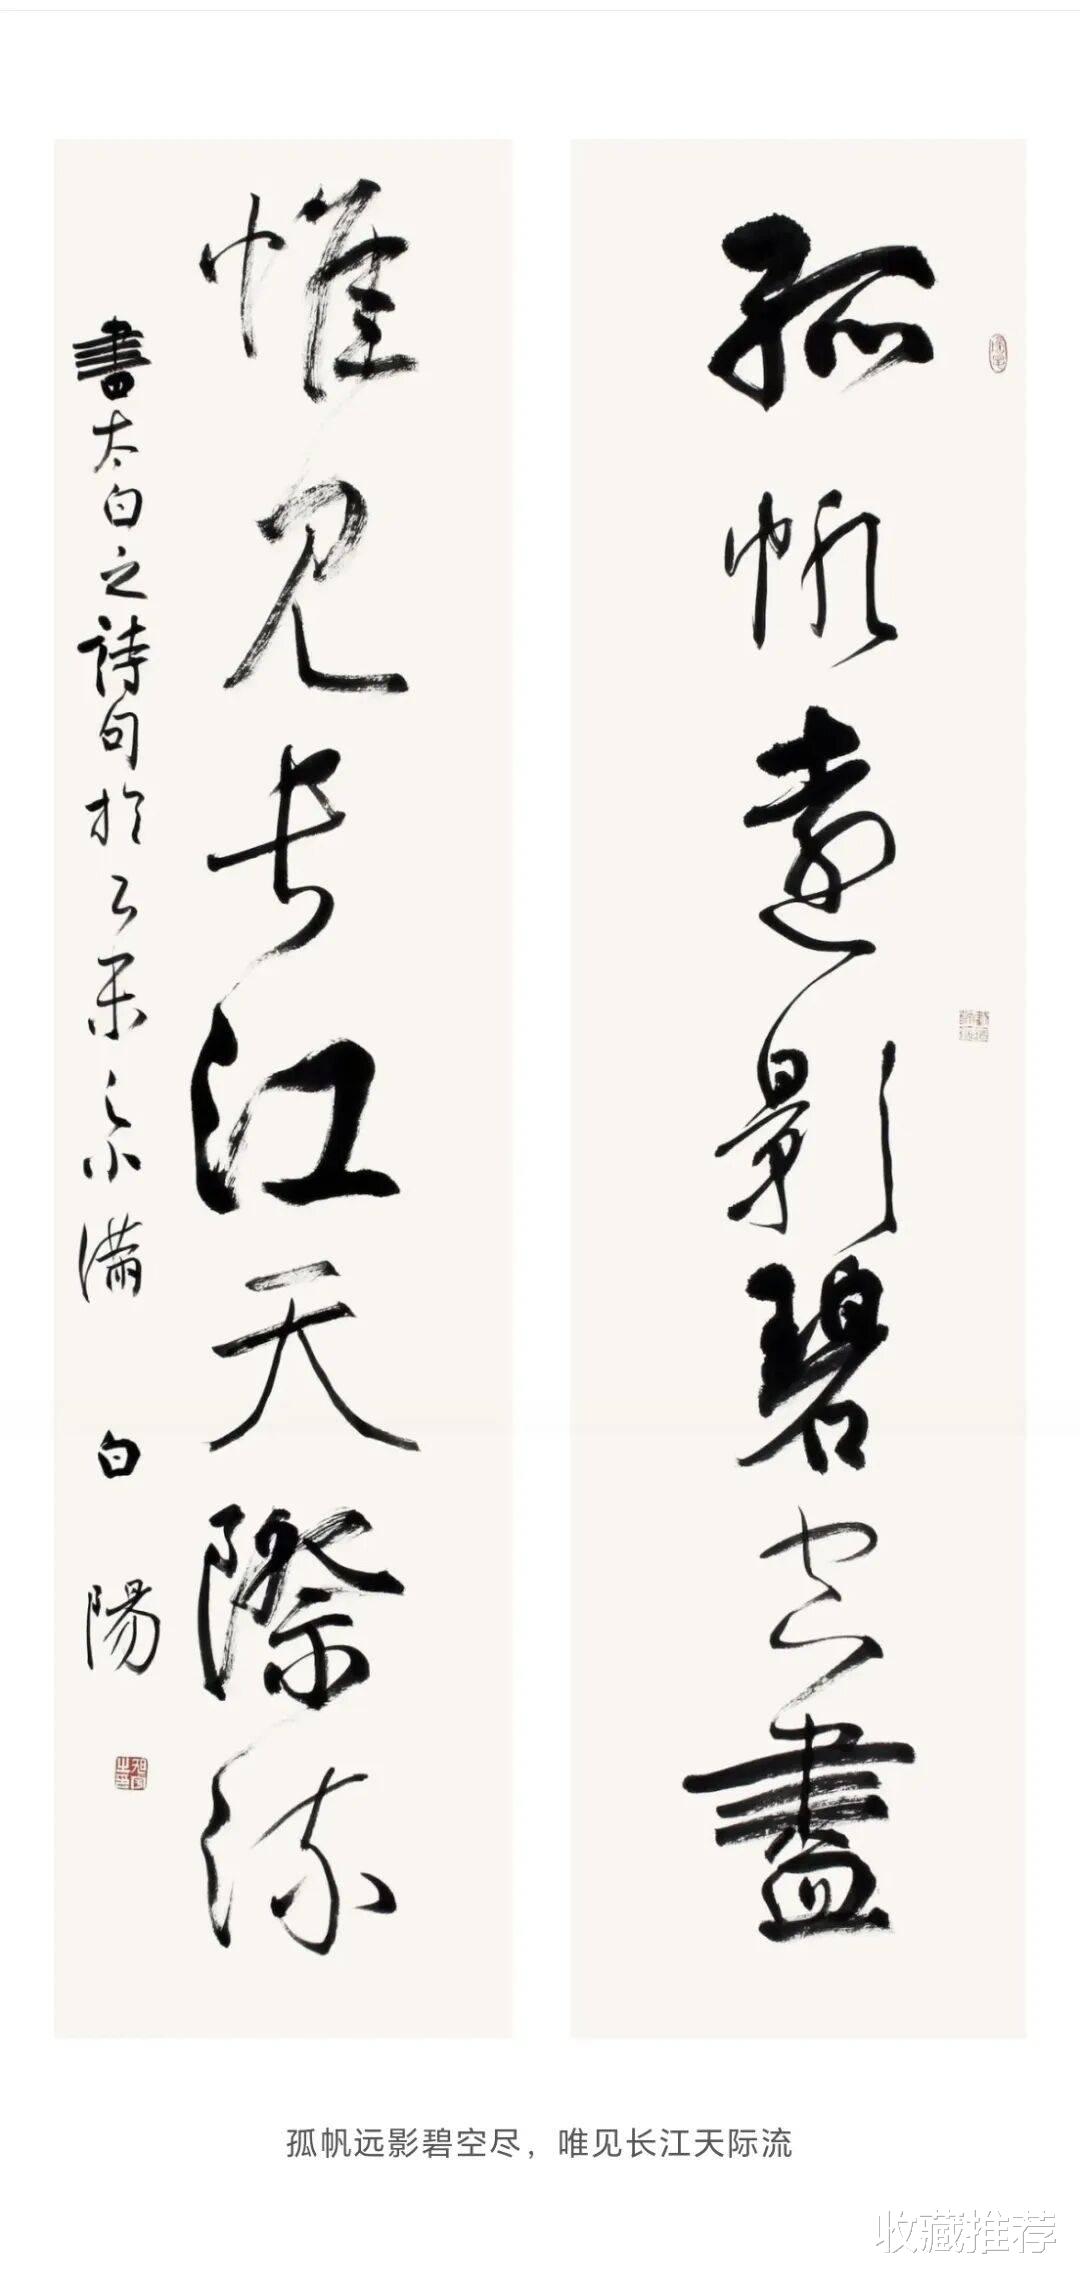 孤帆遠影碧空盡
惟見長江天際流
書太白之詩句於乙未之小滿 白陽
旭宇之印
孤帆远影碧空尽，唯见长江天际流
收藏推荐